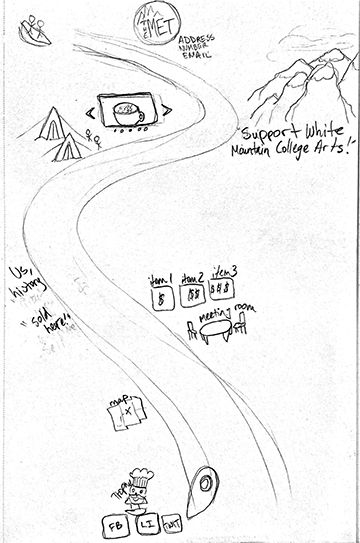 THE MET
ADDRESS
NUMBER
EMAIL
"Support White
Mountain College Arts!"
Us,
history
"sold
here!"
item 1 item 2 item 3
$ $$ $$$
meeting room
map
X
FB LI TWIT